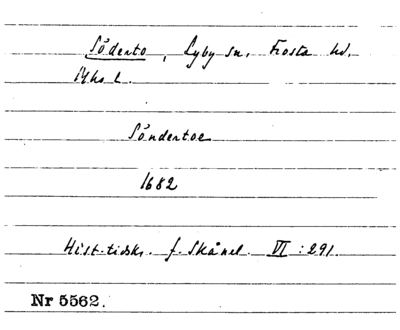 Söderto, Lyby sn, Frosta hd,
Mhs l.
Söndertoe
1682
Hist. tidskr. f. Skånel. VI : 291.
Nr 5562.